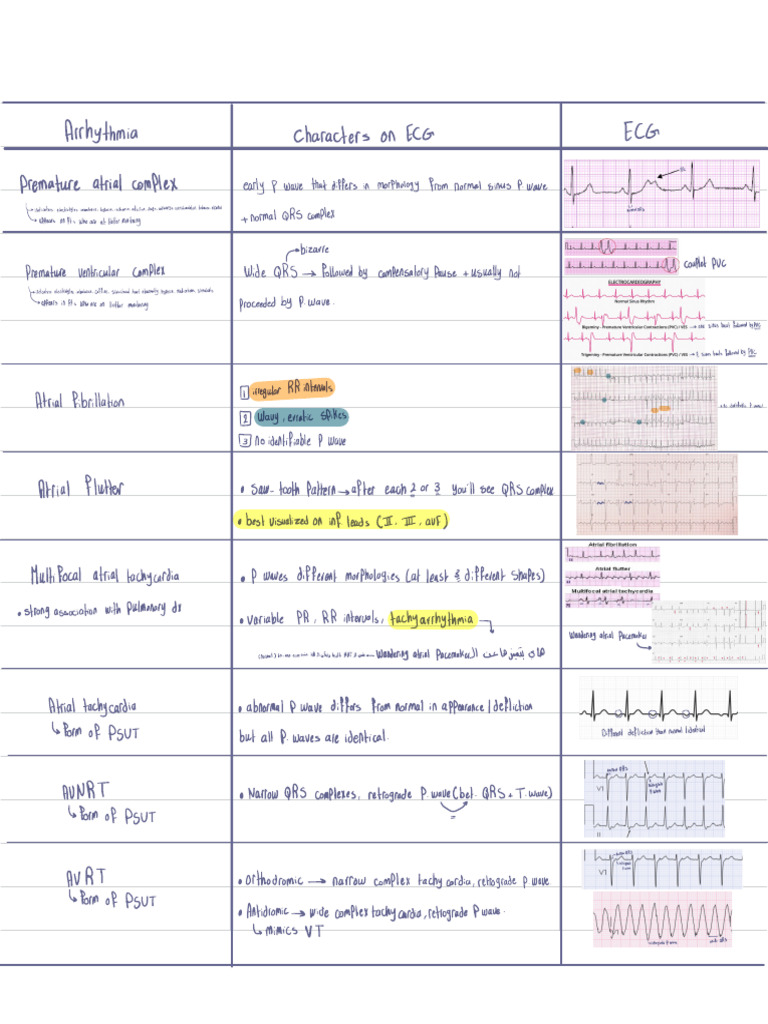 Arrhythmia
Characters on ECG
ECG
Premature atrial complex
early P wave that differs in morphology from normal sinus P wave
+ normal QRS complex
Premature ventricular complex
bizarre
Wide QRS → followed by compensatory pause + usually not
Proceeded by P. wave.
Couplet PVC
ELECTROCARDIOGRAPHY
Normal Sinus Rhythm
Bigeminy - Premature Ventricular Contractions (PVC) / VES
Trigeminy - Premature Ventricular Contractions (PVC) / VES
Atrial Fibrillation
1 irregular RR intervals
2 wavy, erratic spikes
3 no identifiable P wave
Atrial Flutter
• Saw-tooth pattern → after each 2 or 3 you'll see QRS complex
• best visualized on inf leads (II, III, avF)
Multifocal atrial tachycardia
• strong association with Pulmonary dx
• P waves different morphologies (at least 3 different shapes)
• variable PR, RR intervals, tachyarrhythmia
Wandering atrial Pacemaker
Atrial fibrillation
Atrial flutter
Multifocal atrial tachycardia
Wandering atrial Pacemaker
Atrial tachycardia
↳ form of PSVT
• abnormal P wave differs from normal in appearance / deflection
but all P. waves are identical.
Different deflection than normal / identical
AVNRT
↳ form of PSVT
• Narrow QRS complexes, retrograde P wave (bet. QRS + T. wave)
V1
II
AVRT
↳ form of PSVT
• Orthodromic → narrow complex tachycardia, retrograde P wave
• Antidromic → wide complex tachycardia, retrograde P wave.
↳ mimics VT
V1